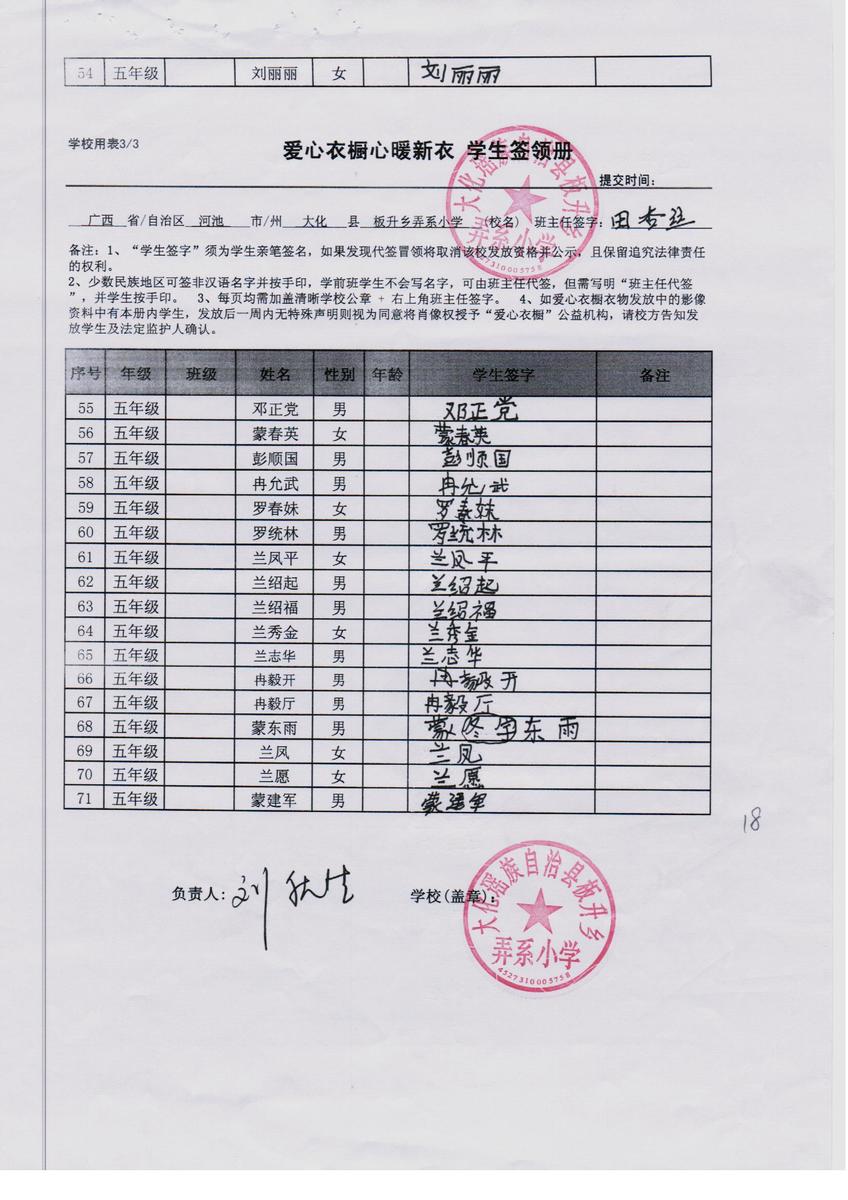 54 五年级 刘丽丽 女 刘丽丽
学校用表3/3
爱心衣橱心暖新衣 学生签领册
提交时间：
广西 省/自治区 河池 市/州 大化 县 板升乡弄系小学 （校名） 班主任签字：田
大化瑶族自治县板升乡
弄系小学
4527310005758
备注：1、“学生签字”须为学生亲笔签名，如果发现代签冒领将取消该校发放资格并公示，且保留追究法律责任
的权利。
2、少数民族地区可签非汉语名字并按手印，学前班学生不会写名字，可由班主任代签，但需写明“班主任代签
”，并学生按手印。 3、每页均需加盖清晰学校公章 + 右上角班主任签字。 4、如爱心衣橱衣物发放中的影像
资料中有本册内学生，发放后一周内无特殊声明则视为同意将肖像权授予“爱心衣橱”公益机构，请校方告知发
放学生及法定监护人确认。
序号 年级 班级 姓名 性别 年龄 学生签字 备注
55 五年级 邓正党 男 邓正党
56 五年级 蒙春英 女 蒙春英
57 五年级 彭顺国 男 彭顺国
58 五年级 冉允武 男 冉允武
59 五年级 罗春妹 女 罗春妹
60 五年级 罗统林 男 罗统林
61 五年级 兰凤平 女 兰凤平
62 五年级 兰绍起 男 兰绍起
63 五年级 兰绍福 男 兰绍福
64 五年级 兰秀金 女 兰秀金
65 五年级 兰志华 男 兰志华
66 五年级 冉毅开 男 冉毅开
67 五年级 冉毅厅 男 冉毅厅
68 五年级 蒙东雨 男 蒙 东雨
69 五年级 兰凤 女 兰凤
70 五年级 兰愿 女 兰愿
71 五年级 蒙建军 男 蒙建军
18
负责人：刘 学校(盖章)：
大化瑶族自治县板升乡
弄系小学
4527310005758